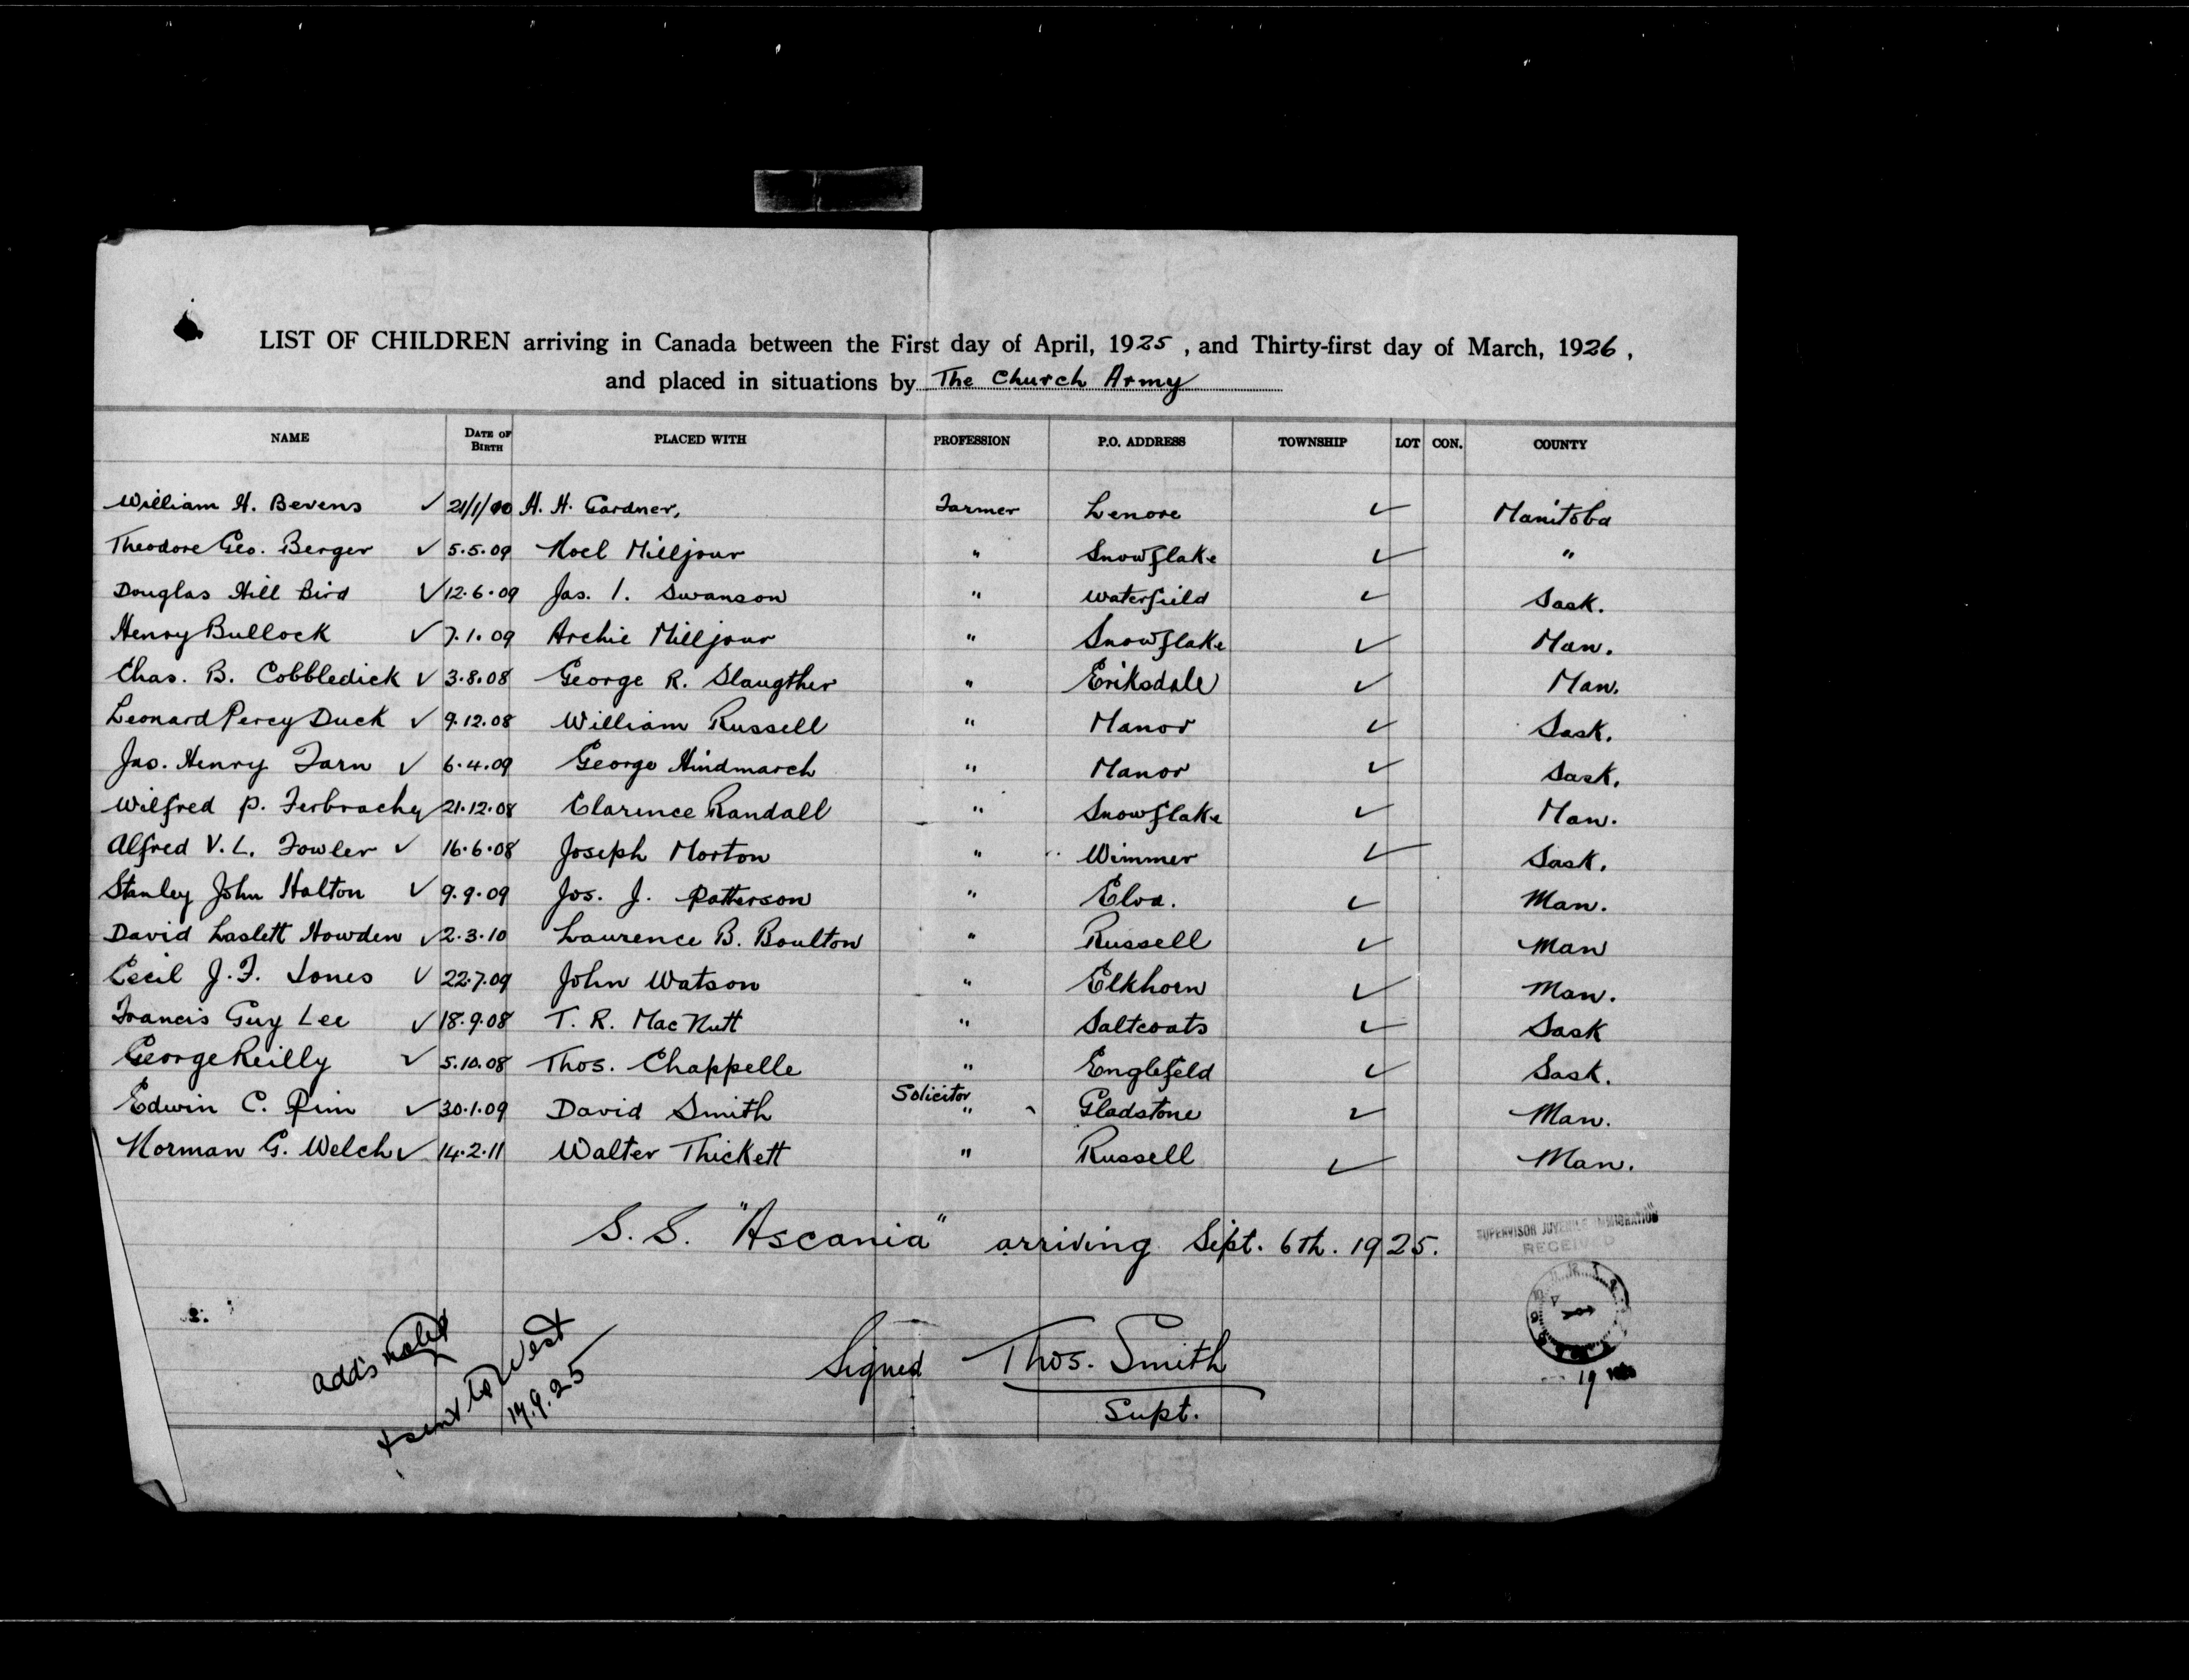 LIST OF CHILDREN arriving in Canada between the First day of April, 1925, and Thirty-first day of March, 1926,
and placed in situations by The Church Army
NAME DATE OF BIRTH PLACED WITH PROFESSION P.O. ADDRESS TOWNSHIP LOT CON. COUNTY
William H. Bevens ✓ 21/1/10 H. H. Gardner, Farmer Lenore ✓ Manitoba
Theodore Geo. Berger ✓ 5.5.09 Noel Milljour " Snowflake ✓ "
Douglas Hill Bird ✓ 12.6.09 Jas. I. Swanson " Waterfield ✓ Sask.
Henry Bullock ✓ 7.1.09 Archie Milljour " Snowflake ✓ Man.
Chas. B. Cobbledick ✓ 3.8.08 George R. Slaugther " Eriksdale ✓ Man.
Leonard Percy Duck ✓ 9.12.08 William Russell " Manor ✓ Sask.
Jas. Henry Farn ✓ 6.4.09 George Hindmarch " Manor ✓ Sask.
Wilfred P. Ferbrachy ✓ 21.12.08 Clarence Randall " Snowflake ✓ Man.
Alfred V. L. Fowler ✓ 16.6.08 Joseph Morton " Wimmer ✓ Sask.
Stanley John Halton ✓ 9.9.09 Jos. J. Patterson " Elva. ✓ Man.
David Laslett Howden ✓ 2.3.10 Laurence B. Boulton " Russell ✓ Man
Cecil J. F. Jones ✓ 22.7.09 John Watson " Elkhorn ✓ Man.
Francis Guy Lee ✓ 18.9.08 T. R. MacNutt " Saltcoats ✓ Sask
George Reilly ✓ 5.10.08 Thos. Chappelle " Englefeld ✓ Sask.
Edwin C. Rim ✓ 30.1.09 David Smith Solicitor " Gladstone ✓ Man.
Norman G. Welch ✓ 14.2.11 Walter Thickett " Russell ✓ Man.
S. S. "Ascania" arriving Sept. 6th. 1925.
SUPERVISOR JUVENILE IMMIGRATION
RECEIVED
19
Signed Thos. Smith
Supt.
adds noted
+ sent to West
17.9.25